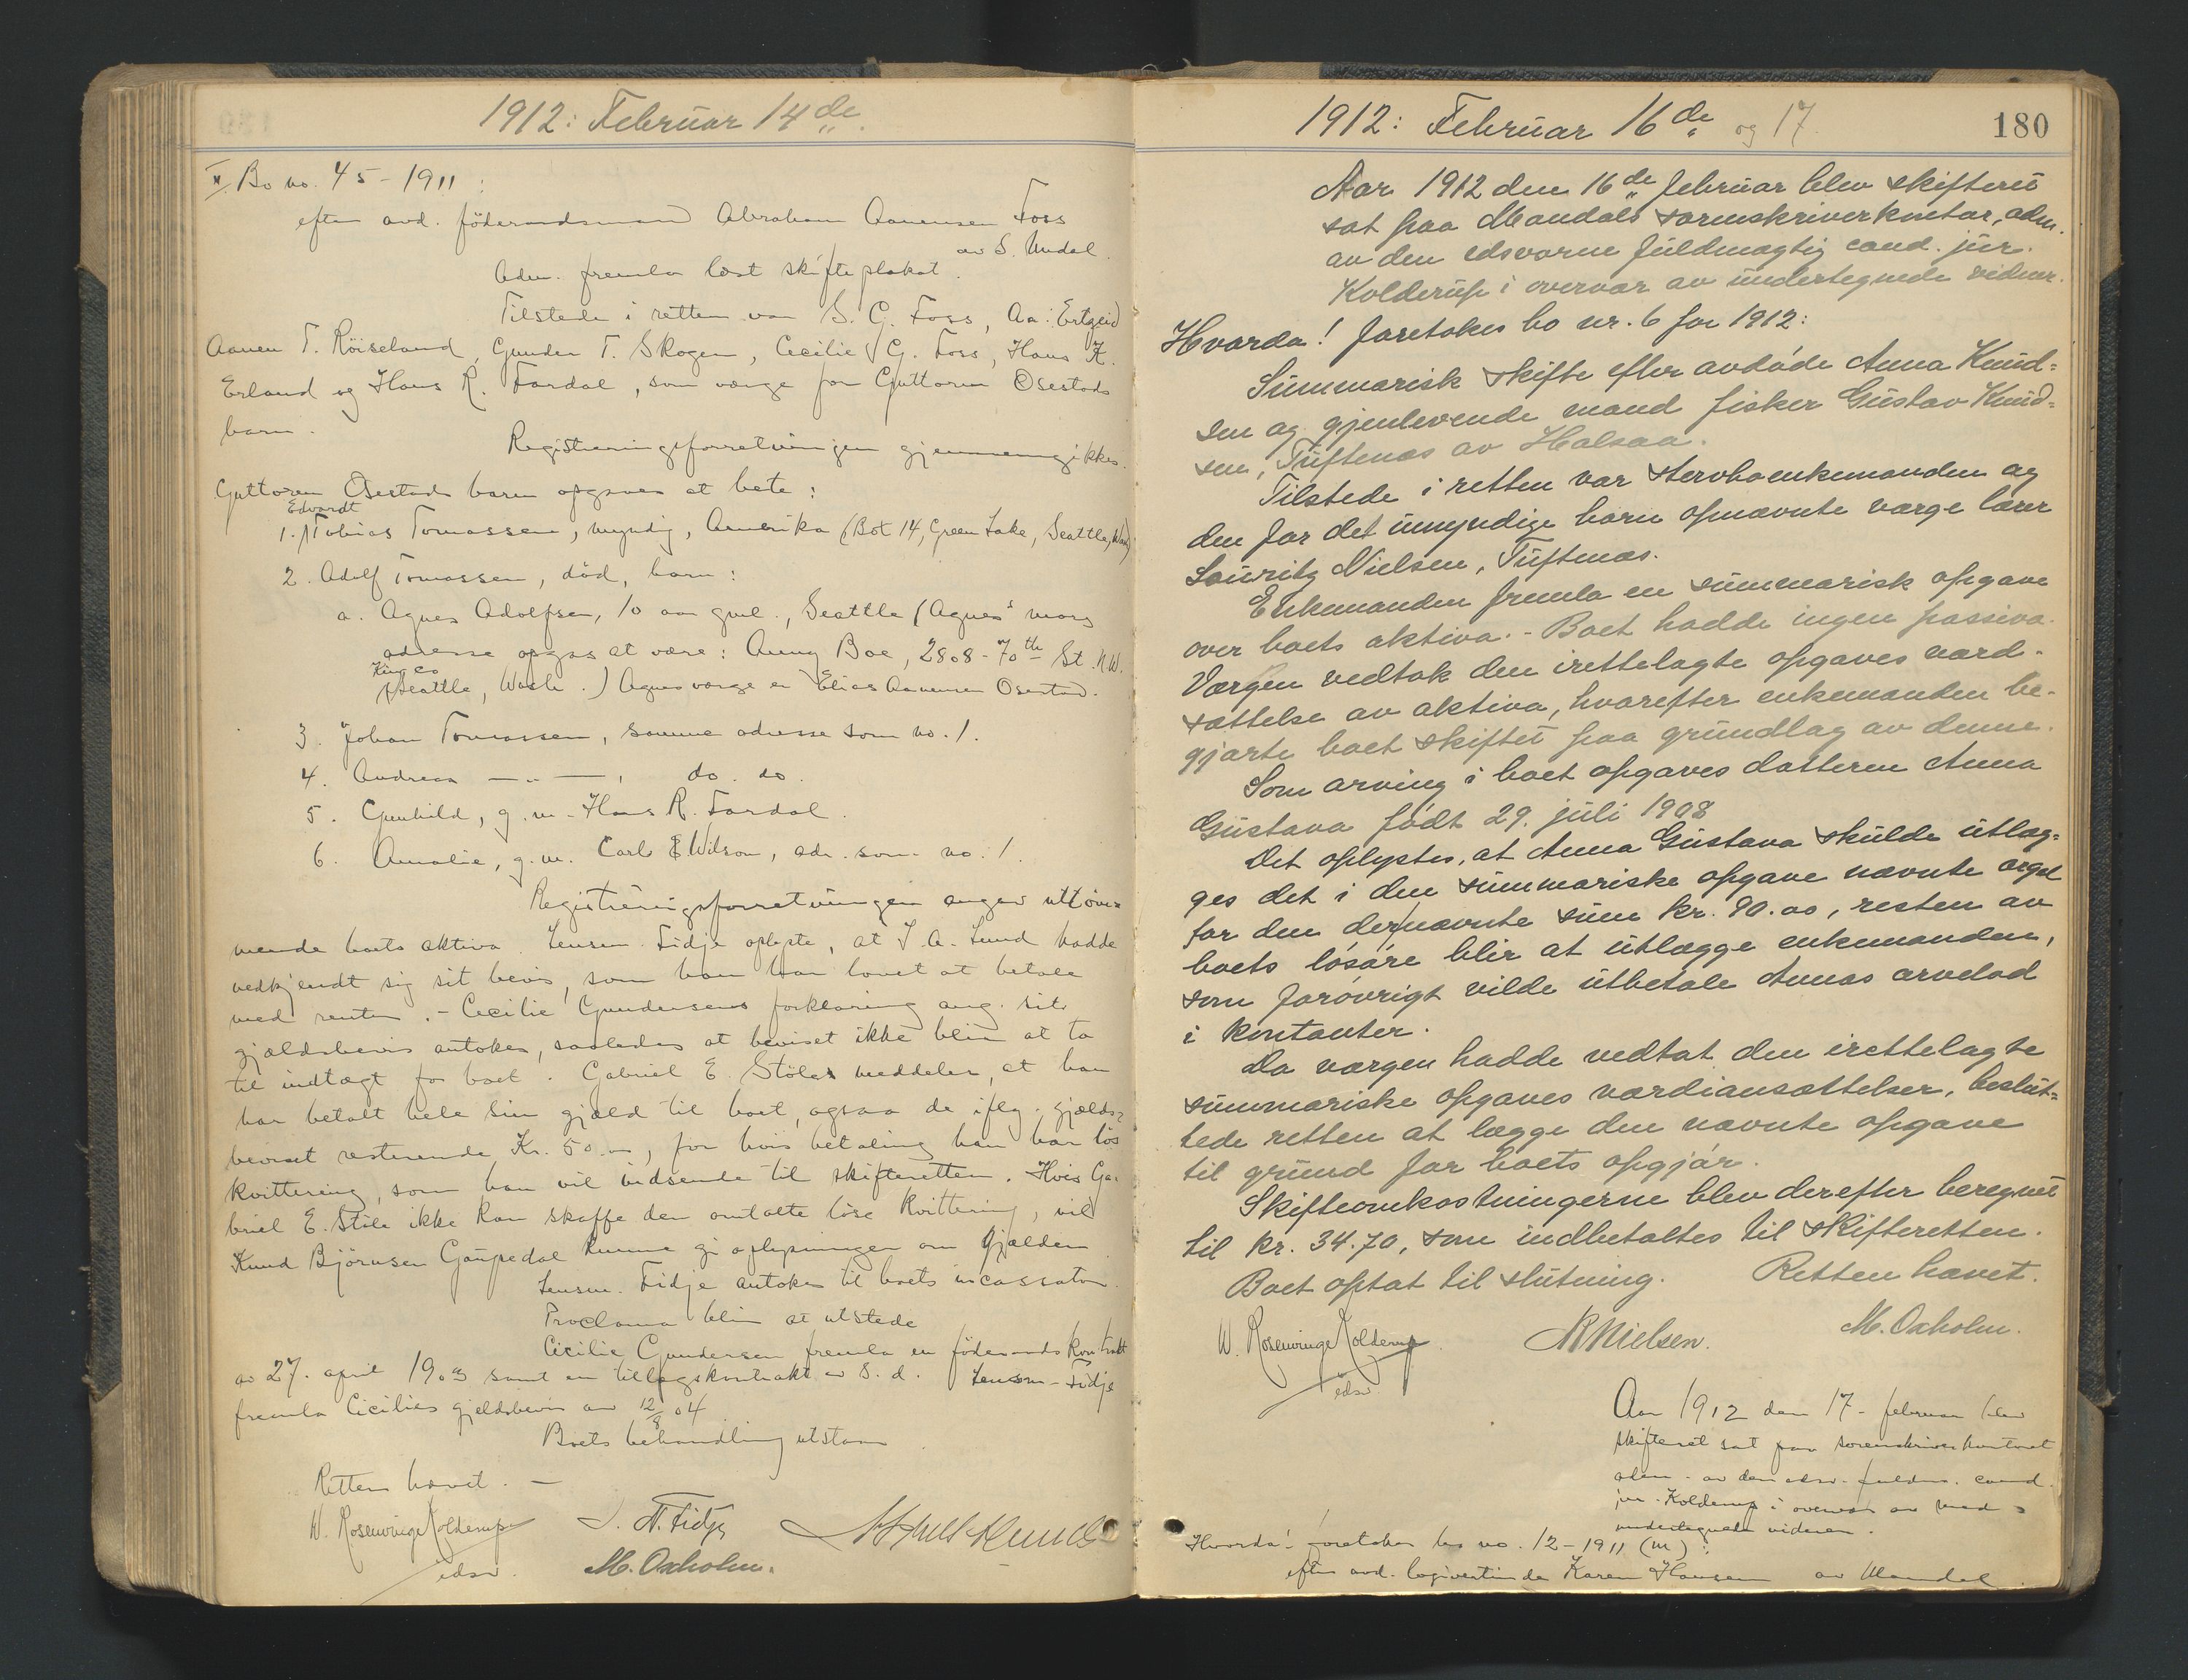 1912: Februar 14de
X. Bo no. 45-1911:
efter avd. föderaadsmand Abraham Aanensen Foss
av S. Undal.
Adm. fremla læst skifteplakat.
Tilstede i retten var S. G. Foss, Aa. Ertzeid
Aanen T. Röiseland, Gunder T. Skogen, Cecilie G. Foss, Hans K.
Erland og Hans R. Fardal, som værge for Guttorm Osestads
barn.
Registreringsforretningen gjennemgikkes.
Guttorm Osestads barn opgaves at hete:
Edvardt
1. Tobias Tomassen, myndig, Amerika (Bot 14, Green Lake, Seattle, Wash)
2. Adolf Tomassen, död, barn:
a. Agnes Adolfsen, 10 aar gml., Seattle (Agnes' mors
adresse opgas at være: Anny Boe, 2808-70th St. N.W.
King Co
Seattle, Wash.) Agnes værge er Elias Aanensen Osestad.
3. Johan Tomassen, samme adresse som no. 1.
4. Andreas —„—, do. do.
5. Gunhild, g. m. Hans R. Fardal.
6. Amalie, g. m. Carl E. Wilson, adr. som no. 1.
Registreringsforretningen anger uttöm-
mende boets aktiva. Lensm. Fidje oplyste, at J. A. Lund hadde
vedkjendt sig sit bevis, som han har lovet at betale
med renter. - Cecilie Gundersens forklaring ang. sit
gjældsbevis antokes, saaledes at beviset ikke blir at ta
til indtægt for boet. Gabriel E. Stölen meddeler, at han
har betalt hele sin gjæld til boet, ogsaa de iflg. gjælds-
beviset resterende Kr. 50.00, for hvis betaling han har lös
kvittering, som han vil indsende til skifteretten. Hvis Ga-
briel E. Stöle ikke kan skaffe den omtalte löse kvittering, vil
Knud Björnsen Gaupedal kunne gi oplysninger om gjælden
Lensm. Fidje antokes til boets incassator.
Proclama blir at utstede
Cicilie Gundersen fremla en föderaadskontrakt
av 27. april 1903 samt en tillægskontrakt av s. d. Lensm. Fidje
fremla Cicilies gjeldsbevis av 12/8 04
Boets behandling utstaar
Retten hævet. —
W. Rosenvinge Kolderup
edsv.
J. N. Fidje
M. Oxholm.
1912: Februar 16de og 17.
180
Aar 1912 den 16de februar blev skifteret
sat paa Mandals sorenskriverkontor, adm.
av den edsvorne fuldmægtig cand. jur.
Kolderup i overvær av undertegnede vidner.
Hvorda! foretokes bo nr. 6 for 1912:
Summarisk skifte efter avdöde Anna Knud-
sen og gjenlevende mand fisker Gustav Knud-
sen, Tuftenæs av Halsaa.
Tilstede i retten var stervboenkemanden og
den for det umyndige barn opnævnte værge lærer
Lauritz Nielsen, Tuftenæs.
Enkemanden fremla en summarisk opgave
over boets aktiva. - Boet hadde ingen passiva.
Værgen vedtok den irettelagte opgaves værd-
sættelse av aktiva, hvorefter enkemanden be-
gjærte boet skiftet paa grundlag av denne.
Som arving i boet opgaves datteren Anna
Gustava født 29. juli 1908
Det oplystes, at Anna Gustava skulde utlæg-
ges det i den summariske opgave nævnte orgel
for den dernævnte sum kr. 90.00, resten av
boets løsøre blir at utlægge enkemanden,
som forøvrigt vilde utbetale Annas arvelod
i kontanter.
Da værgen hadde vedtat den irettelagte
summariske opgaves værdiansættelser, beslut-
tede retten at lægge den nævnte opgave
til grund for boets opgjør.
Skifteomkostningerne blev derefter beregnet
til kr. 34.70, som indbetaltes til skifteretten.
Boet optat til slutning. Retten hævet.
W. Rosenvinge Kolderup
edsv.
Nielsen.
M. Oxholm.
Aar 1912 den 17. februar blev
skifteret sat paa sorenskriverkontoret
adm. av den edsv. fuldm. cand.
jur. Kolderup i overvær av med-
undertegnede vidner.
Hvorda! foretokes bo no. 12-1911 (M):
efter avd. logivertinde Karen Hansen av Mandal.